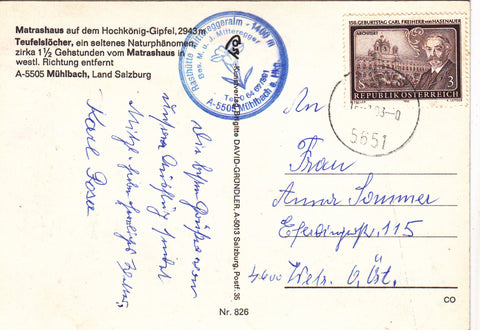 Matrashaus auf dem Hochkönig-Gipfel, 2943 m
Teufelslöcher, ein seltenes Naturphänomen,
zirka 1½ Gehstunden vom Matrashaus in
westl. Richtung entfernt
A-5505 Mühlbach, Land Salzburg
Rasthütte Mittereggeralm - 1400 m
Bes. M. u. J. Mitteregger
Tel. 0 64 67
A-5505 Mühlbach a. Hkg.
Die besten Grüße von
unserem
Karl
Kunstverlag Brigitte DAVID-GRÜNDLER, A-5013 Salzburg, Postf. 35
Nr. 826
150. GEBURTSTAG CARL FREIHERR VON HASENAUER
ARCHITEKT
3
REPUBLIK ÖSTERREICH
5651
An
Frau
Anna Sommer
Eferdingerstr. 115
4600 Wels. O.Öst.
CO